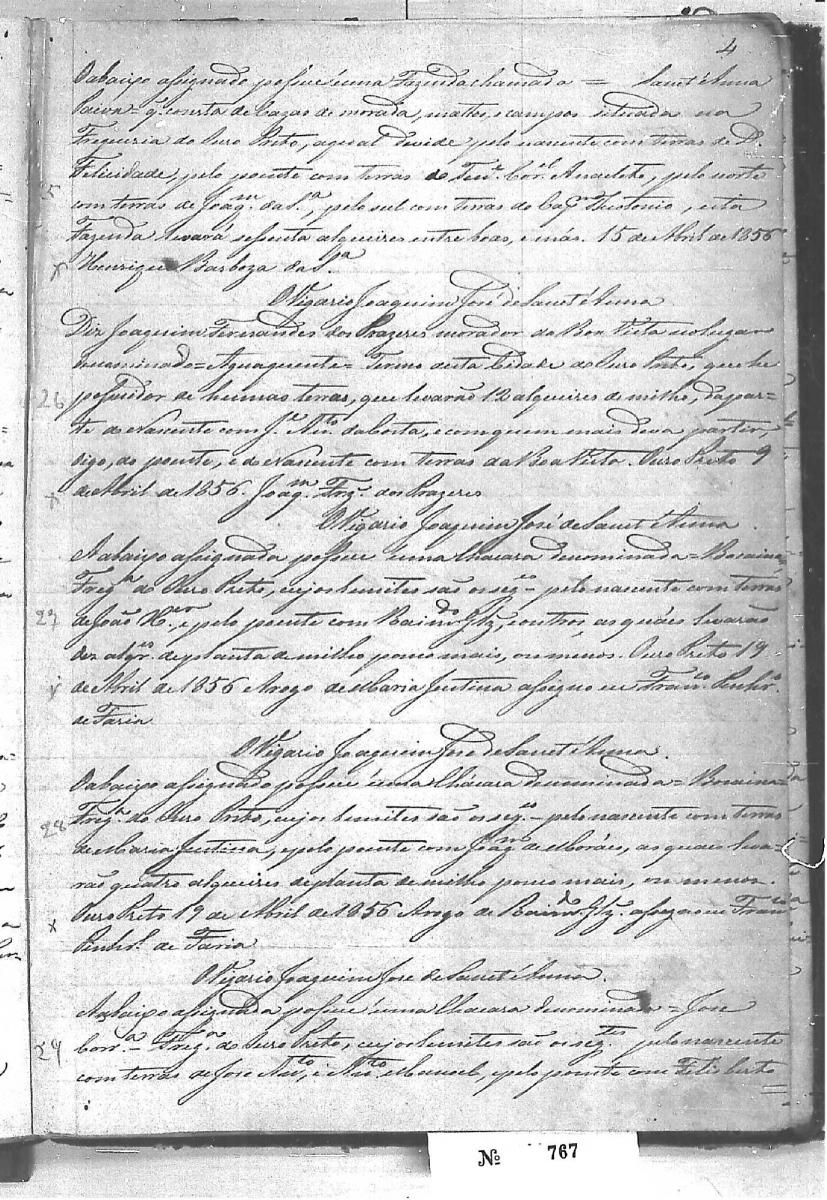 4
O abaixo assignado possue uma Fazenda chamada = Sant'Anna
Paiva = q. consta de cazas de morada, mattos, e campos situada na
Freguezia do Ouro Preto, a qual devide pelo nascente com terras de D.
Felicidade, pelo poente com terras do Ten.e Cor.el Anacleto, pelo norte
25
com terras de Joaq.m da S.a, pelo sul com terras do Cap.m Theotonio, esta
Fazenda levará sessenta alqueires entre boas, e más. 15 de Abril de 1856
x
Henrique Barboza da S.a
O Vigario Joaquim José de Sant'Anna
Diz Joaquim Fernandes dos Prazeres morador da Boa Vista no lugar
denominado = Agua quente = Termo desta Cidade do Ouro Preto, que he
26
possuidor de humas terras, que levarão 12 alqueires de milho, da par-
te do Nascente com J.e Ant.o da Costa, e com quem mais deva partir,
digo, do poente, e do Nascente com terras da Boa Vista. Ouro Preto 9
x
de Abril de 1856. Joaq.m Frz. dos Prazeres
O Vigario Joaquim José de Sant'Anna
A abaixo assignada possue uma Chacara denominada = Bocaina
Freg.a do Ouro Preto, cujos limites são os seg.es - pelo nascente com terras
27
de João e pelo poente com Raim.do Glz, e outros, as quáes levarão
dez alqr.es de planta de milho pouco mais, ou menos. Ouro Preto 19
x
de Abril de 1856 Arogo de Maria Justina assigno eu Fran.co Pinhr.o
de Faria
O Vigario Joaquim José de Sant'Anna.
O abaixo assignado possue uma Chacara denominada = Bocaina =
28
Freg.a do Ouro Preto, cujos limites são os seg.es - pelo nascente com terras
de Maria Justina, e pelo poente com Joaq.m de Moráes, as quaes leva-
rão quatro alqueires de planta de milho pouco mais, ou menos.
x
Ouro Preto 19 de Abril de 1856 Arogo de Raim.do Glz. assigno eu Fran.co
Pinhr.o de Faria
O Vigario Joaquim José de Sant'Anna.
A abaixo assignada possue uma Chacara denominada = José
Corr.a = Freg.a do Ouro Preto, cujos limites são os seg.tes pelo nascente
29
com terras de José e Ant.o Manoel, e pelo poente com Felisberto
Nº 767